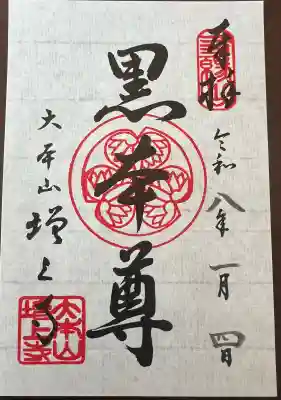 奉拝
令和八年一月四日
黒本尊
大本山増上寺
大本山
増上寺